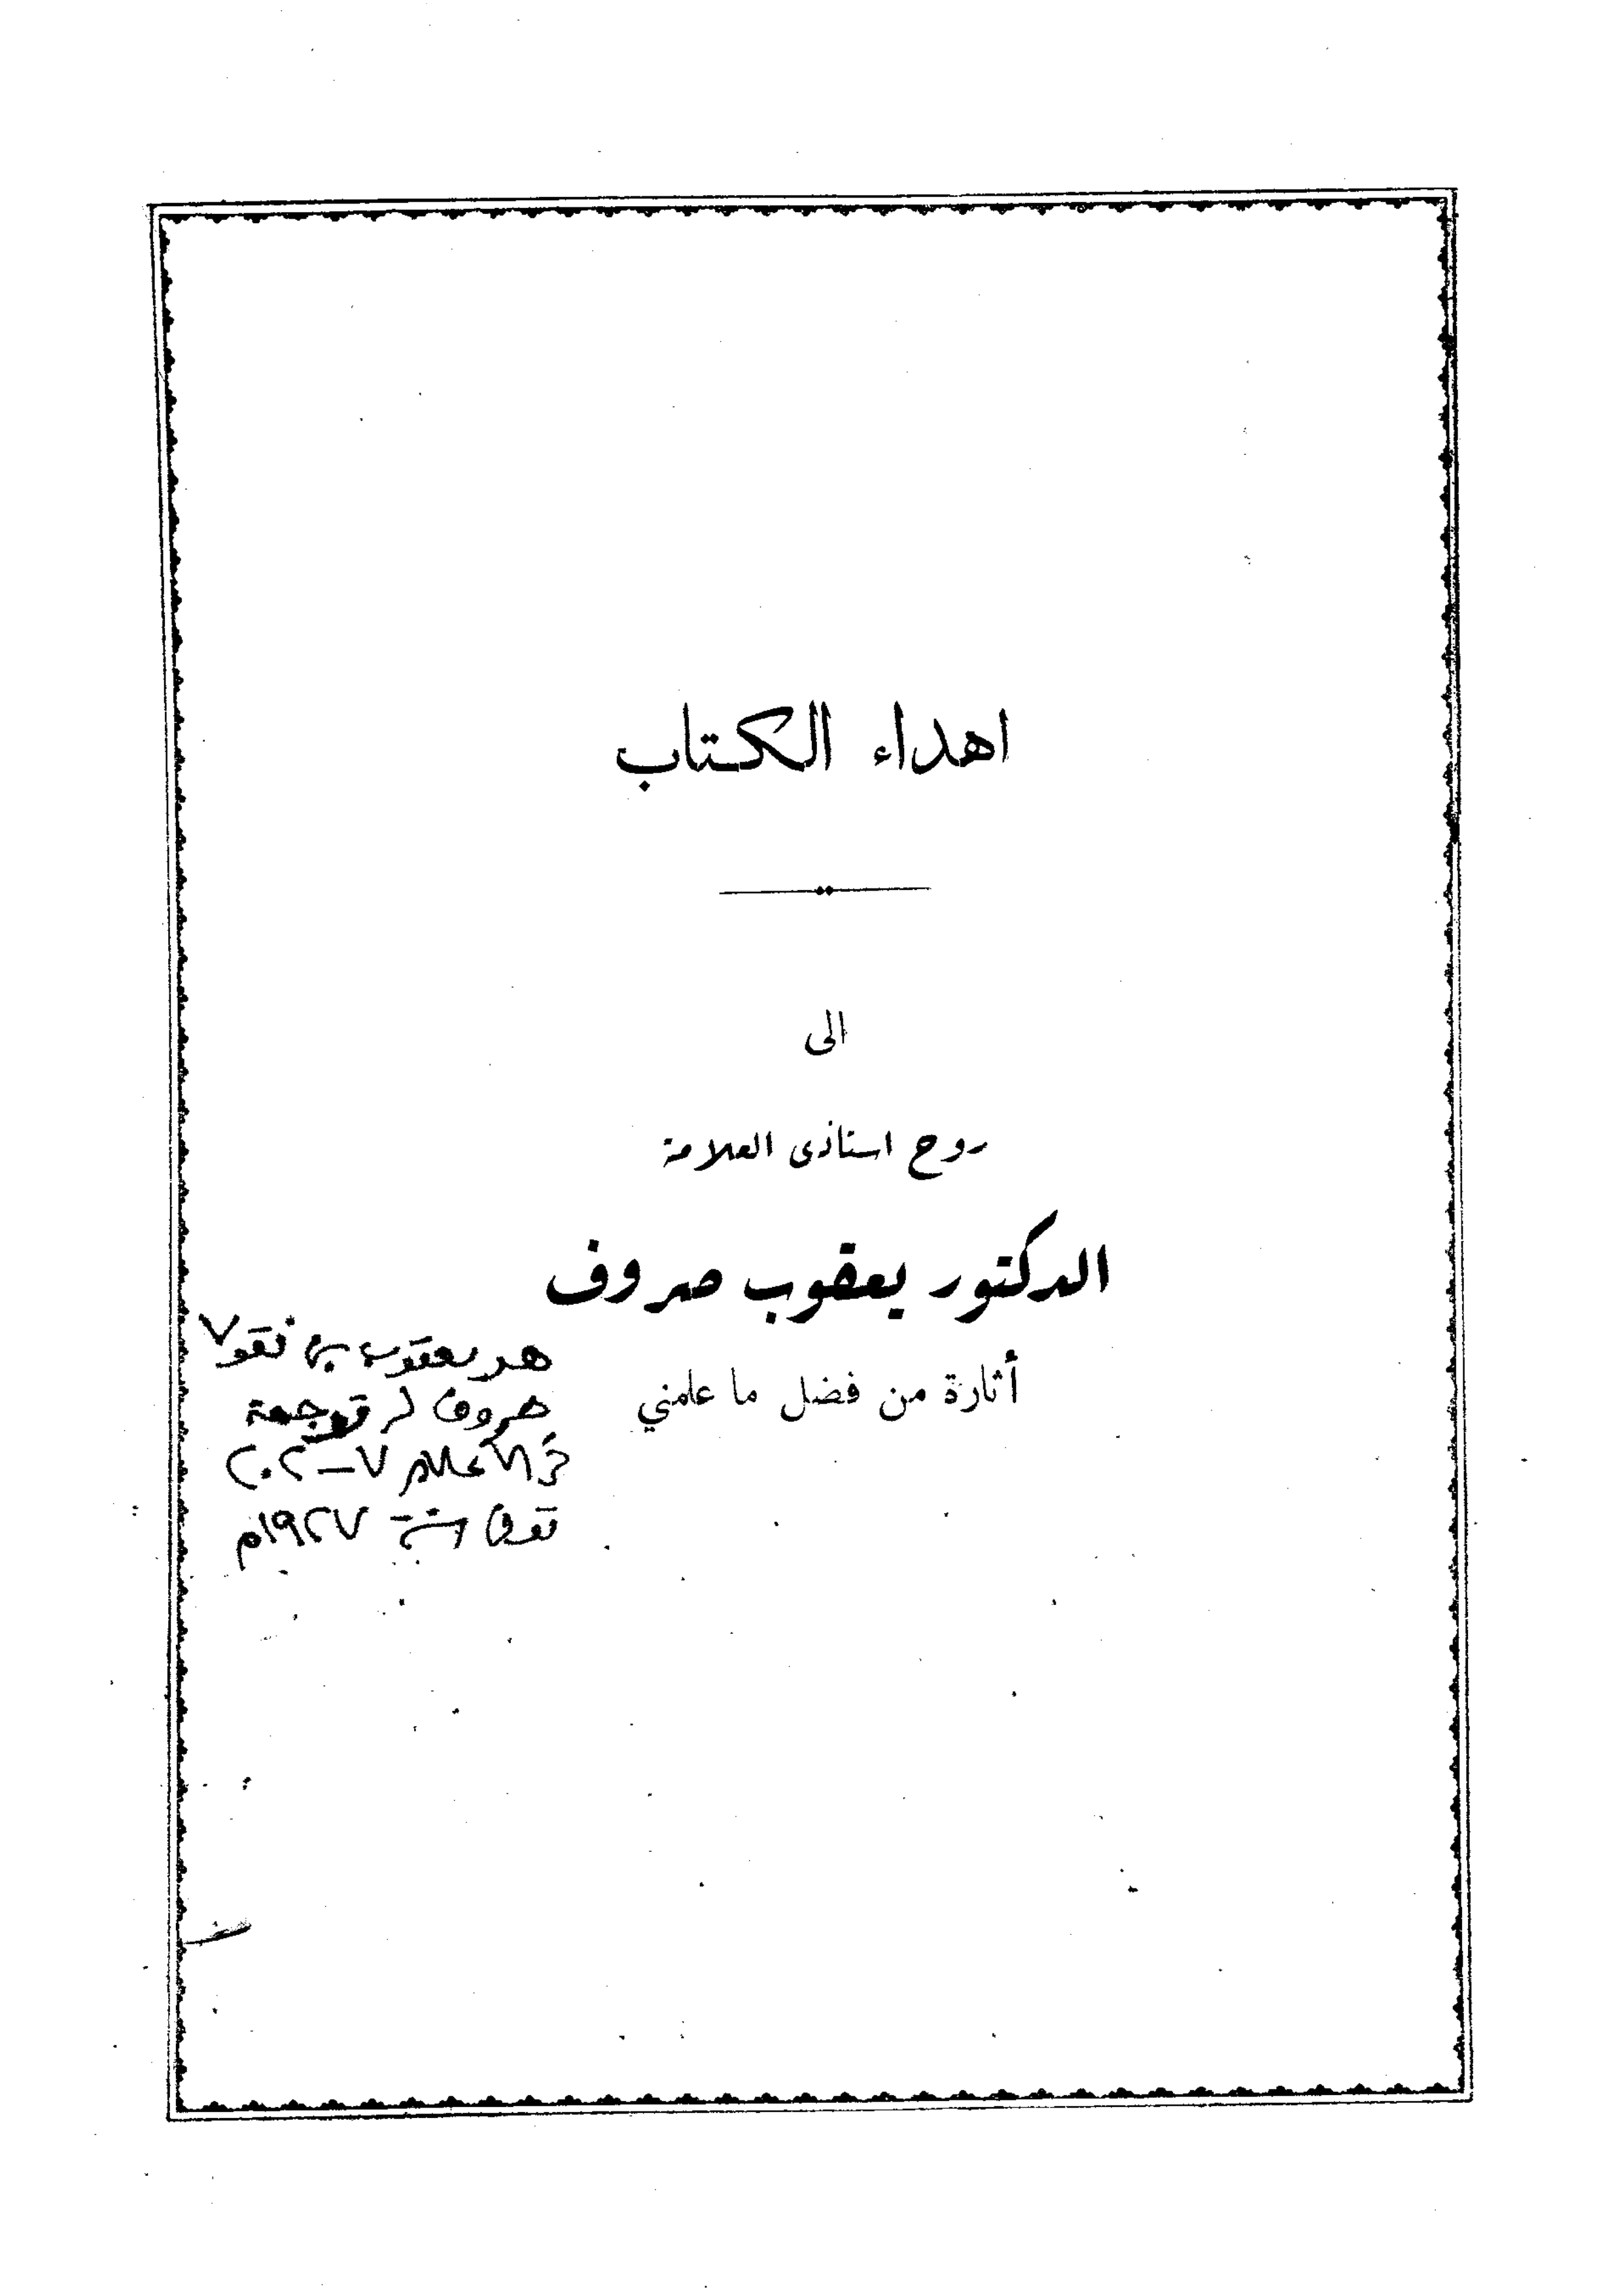 اهداء الكتاب
الى
روح استاذى العلامة
الدكتور يعقوب صروف
أثارة من فضل ما علمني
هو يعقوب بن نقولا
صروف له ترجمة
في الأعلام ٧ – ٢٠٢
توفي سنة ١٩٢٧م